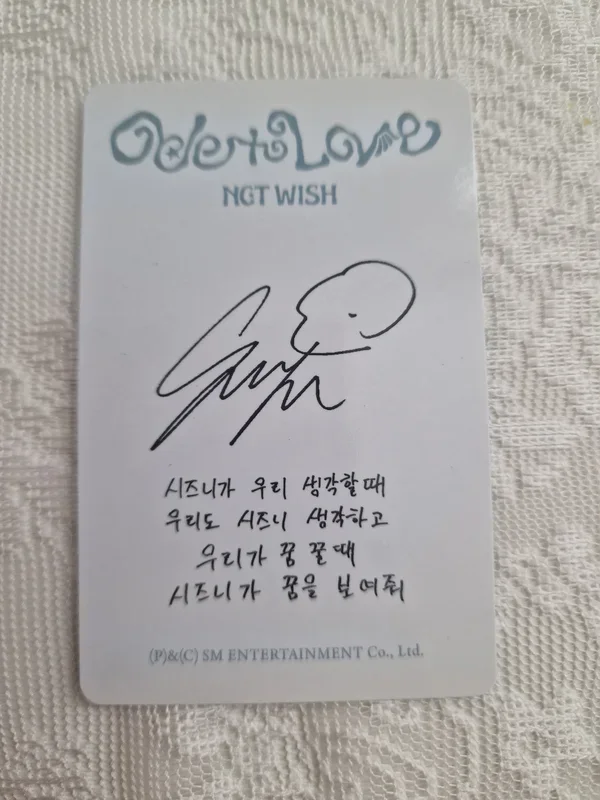 Ode to Love
NCT WISH
시즈니가 우리 생각할때
우리도 시즈니 생각하고
우리가 꿈 꿀때
시즈니가 꿈을 보여줘
(P)&(C) SM ENTERTAINMENT Co., Ltd.